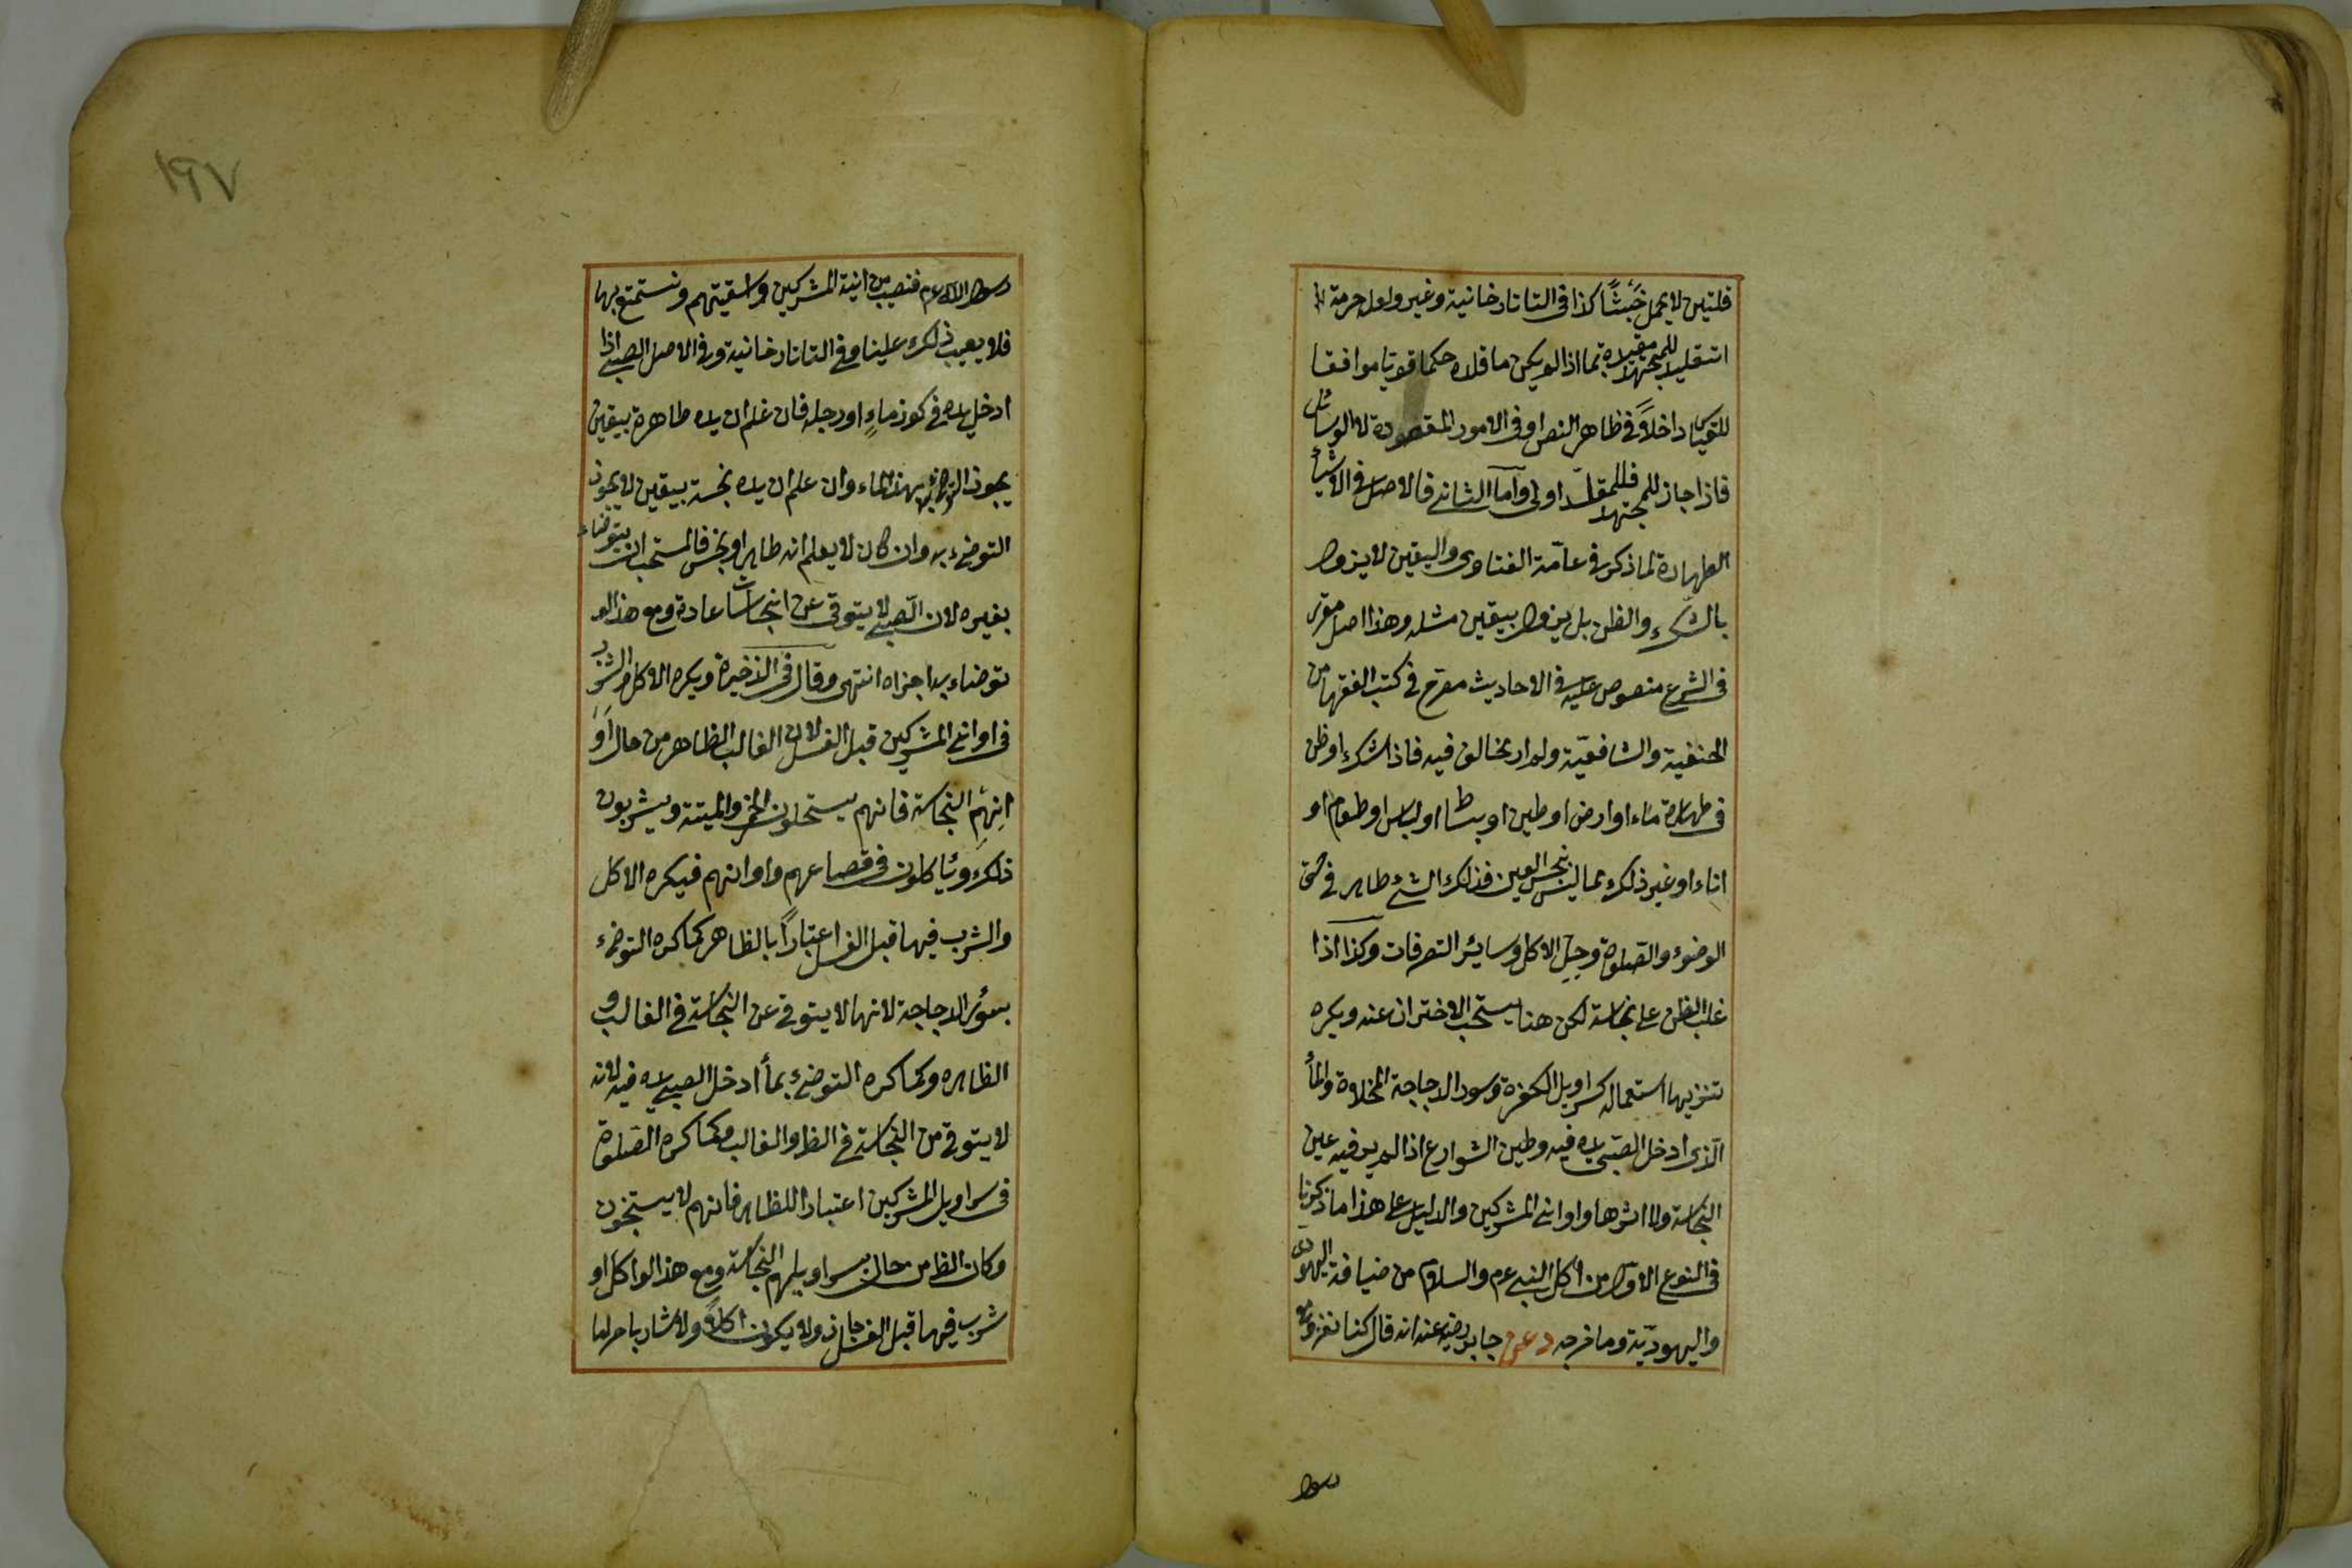 قلتين لا يحمل خبثا كذا في التاتارخانية وغيره ولعل حرمة
التقليد للمجتهد مقيدة بما اذا لم يكن ما قلده حكما قويا موافقا
للقياس داخلا في ظاهر النص او في الامور المقصودة لا الوسائل
فاذا جاز للمجتهد فللمقلد اولى واما الثاني فالاصل في الاشياء
الطهارة لما ذكر في عامة الفتاوى واليقين لا يزول
بالشك والظن بل يزول بيقين مثله وهذا اصل مقرر
في الشرع منصوص عليه في الاحاديث مصرح في كتب الفقهاء من
الحنفية والشافعية ولم ار مخالف فيه فاذا شك او ظن
في طهارة ماء او ارض او طين او بساط او لباس او طعام او
اناء او غير ذلك مما ليس بنجس العين فذلك الشيء طاهر في حق
الوضوء والصلوة وحل الاكل وسائر التصرفات وكذا اذا
غلب الظن على نجاسة لكن هنا يستحب الاحتراز عنه ويكره
تنزيها استعماله كسراويل الكفرة وسور الدجاجة المخلاة والماء
الذى ادخل الصبى يده فيه وطين الشوارع اذا لم ير فيه عين
النجاسة ولا اثرها واواني المشركين والدليل على هذا ما ذكرنا
في النوع الاول من اكل النبي عم والسلام من ضيافة اليهودى
واليهودية وما خرجه د عن جابر رضي عنه انه قال كنا نغزو مع
رسول
١٩٧
رسول الله عم فنصيب من انية المشركين واسقيتهم ونستمتع بها
فلا يعيب ذلك علينا وفي التاتارخانية وفي الاصل الصبي اذا
ادخل يده في كوز ماء او رجله فان علم ان يده طاهرة بيقين
يجوز التوضئ بهذا الماء وان علم ان يده نجسة بيقين لا يجوز
التوضئ به وان كان لا يعلم انه طاهر او نجس فالمستحب ان يتوضاء
بغيره لان الصبي لا يتوقى عن النجاسات عادة ومع هذا لو
توضاء به اجزاه انتهى وقال في الذخيرة ويكره الاكل والشرب
في اواني المشركين قبل الغسل لان الغالب الظاهر من حال اوا
انيهم النجاسة فانهم يستحلون الخمر والميتة ويشربون
ذلك وياكلون في قصاعهم واوانهم فيكره الاكل
والشرب فيها قبل الغسل اعتبارا بالظاهر كما كره التوضئ
بسؤر الدجاجة لانها لا يتوقى عن النجاسة في الغالب و
الظاهر وكما كره التوضئ بماء ادخل الصبي يده فيه لانه
لا يتوقى من النجاسة في الظ والغالب وكما كره الصلوة
في سراويل المشركين اعتبارا للظاهر فانهم لا يستنجون
وكان الظ من حال سراويلهم النجاسة ومع هذا لو اكل او
شرب فيها قبل الغسل جاز ولا يكون اكلا ولا شاربا حراما